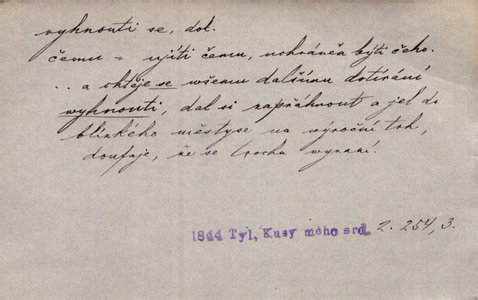 vyhnouti se, dok.
čemu = ujíti čemu, uchráněn býti čeho.
. . a chtěje se všemu dalšímu dotírání
vyhnouti, dal si zapřáhnout a jel do
blízkého městyse na výroční trh,
doufaje, že se trochu vyrazí.
1844 Tyl, Kusy mého srd. 2. 254, 3.